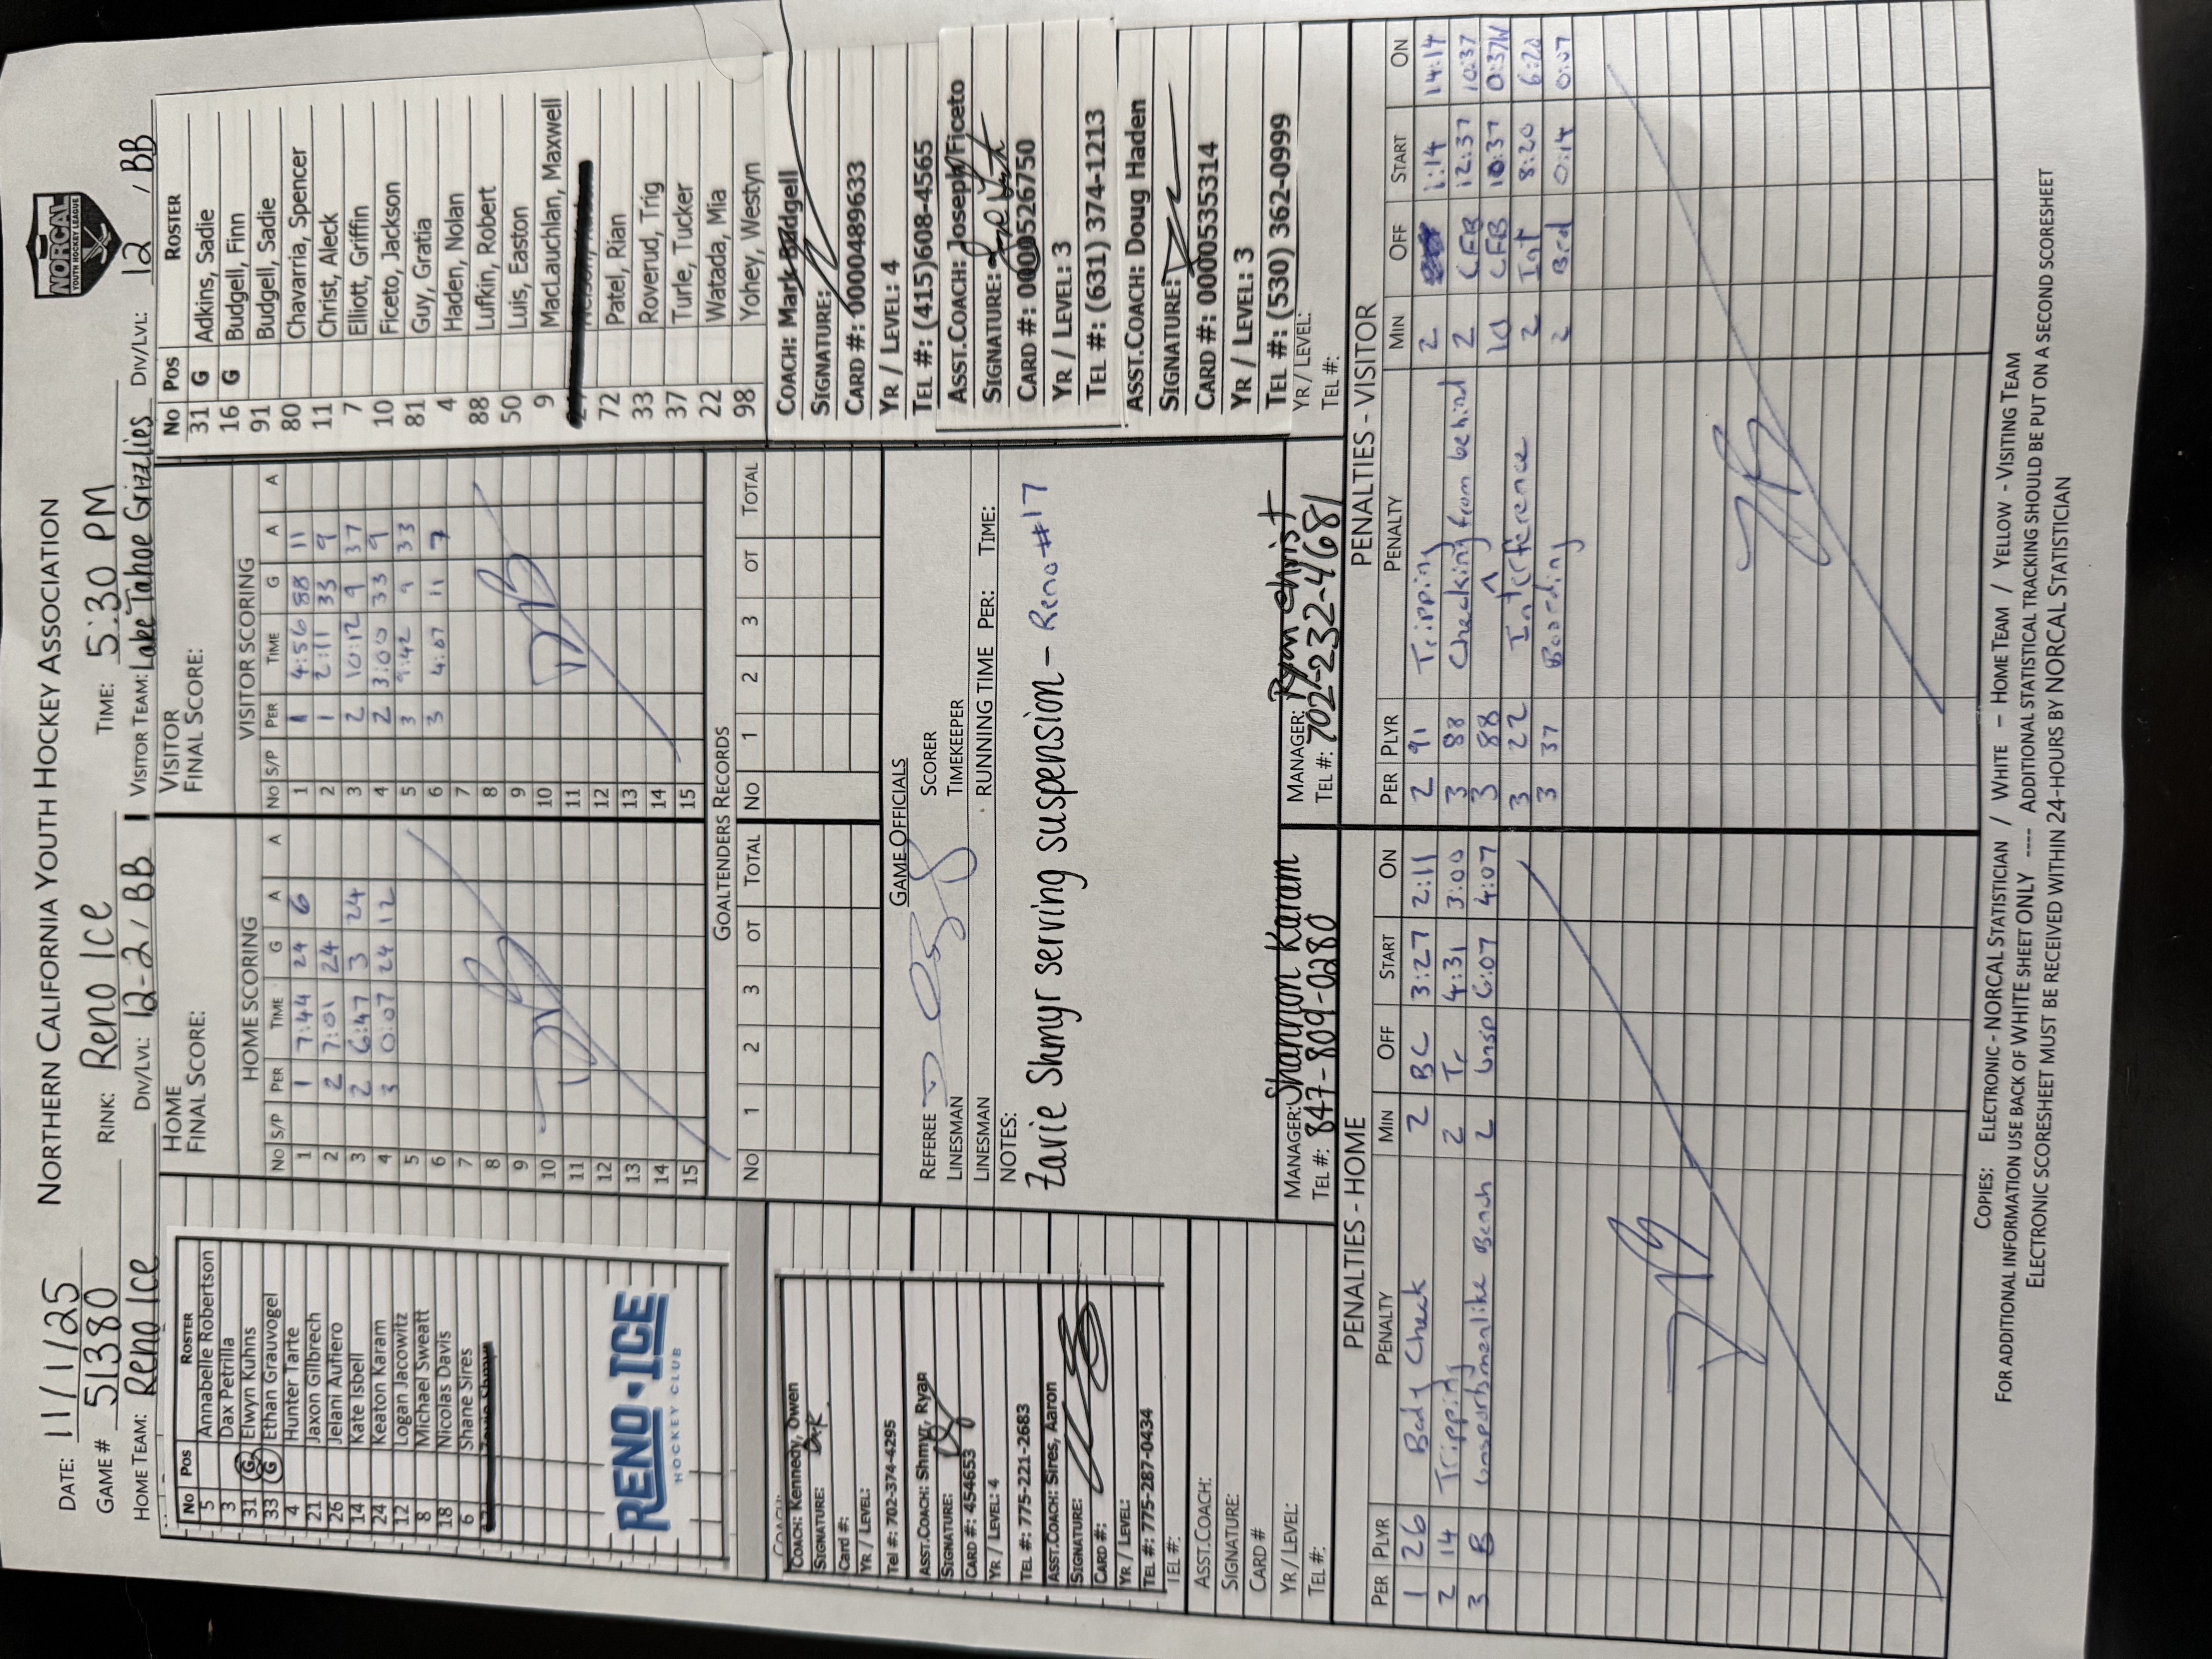 DATE: 11/1/25 NORTHERN CALIFORNIA YOUTH HOCKEY ASSOCIATION
NORCAL
YOUTH HOCKEY LEAGUE
GAME # 51380 RINK: Reno Ice TIME: 5:30 PM
HOME TEAM: Reno Ice DIV/LVL: 12-2 / BB VISITOR TEAM: Lake Tahoe Grizzlies DIV/LVL: 12 / BB
No Pos ROSTER
5 Annabelle Robertson
3 Dax Petrilla
31 G Elwyn Kuhns
33 G Ethan Grauvogel
4 Hunter Tarte
21 Jaxon Gilbrech
26 Jelani Aufiero
14 Kate Isbell
24 Keaton Karam
12 Logan Jacowitz
8 Michael Sweatt
18 Nicolas Davis
6 Shane Sires
RENO ICE
HOCKEY CLUB
HOME
FINAL SCORE:
HOME SCORING
NO S/P PER TIME G A A
1 1 7:44 24 6
2 2 7:01 24
3 2 6:47 3 24
4 3 0:07 24 12
5
6
7
8
9
10
11
12
13
14
15
VISITOR
FINAL SCORE:
VISITOR SCORING
NO S/P PER TIME G A A
1 1 4:56 88 11
2 1 2:11 33 9
3 2 10:12 9 37
4 2 3:00 33 9
5 3 9:42 9 33
6 3 4:07 11 7
7
8
9
10
11
12
13
14
15
No Pos ROSTER
31 G Adkins, Sadie
16 G Budgell, Finn
91 Budgell, Sadie
80 Chavarria, Spencer
11 Christ, Aleck
7 Elliott, Griffin
10 Ficeto, Jackson
81 Guy, Gratia
4 Haden, Nolan
88 Lufkin, Robert
50 Luis, Easton
9 MacLauchlan, Maxwell
72 Patel, Rian
33 Roverud, Trig
37 Turle, Tucker
22 Watada, Mia
98 Yohey, Westyn
GOALTENDERS RECORDS
NO 1 2 3 OT TOTAL NO 1 2 3 OT TOTAL
COACH: Kennedy, Owen
SIGNATURE:
Card #:
YR / LEVEL:
Tel #: 702-374-4295
ASST.COACH: Shmyr, Ryan
SIGNATURE:
CARD #: 454653
YR / LEVEL: 4
TEL #: 775-221-2683
ASST.COACH: Sires, Aaron
SIGNATURE:
CARD #:
YR / LEVEL:
TEL #: 775-287-0434
TEL #:
ASST.COACH:
SIGNATURE:
CARD #
YR / LEVEL:
TEL #:
GAME OFFICIALS
REFEREE SCORER
LINESMAN TIMEKEEPER
LINESMAN RUNNING TIME PER: TIME:
NOTES:
Zavie Shmyr serving suspension - Reno #17
MANAGER: Shannon Karam MANAGER: Ryan Christ
TEL #: 847-809-0280 TEL #: 702-232-4681
COACH: Mark Budgell
SIGNATURE:
CARD #: 0000489633
YR / LEVEL: 4
TEL #: (415)608-4565
ASST.COACH: Joseph Ficeto
SIGNATURE:
CARD #: 0000526750
YR / LEVEL: 3
TEL #: (631) 374-1213
ASST.COACH: Doug Haden
SIGNATURE:
CARD #: 0000535314
YR / LEVEL: 3
TEL #: (530) 362-0999
YR / LEVEL:
TEL #:
PENALTIES - HOME
PER PLYR PENALTY MIN OFF START ON
1 26 Body Check 2 BC 3:27 2:11
2 14 Tripping 2 Tr 4:31 3:00
3 B Unsportsmanlike Bench 2 Unsp 6:07 4:07
PENALTIES - VISITOR
PER PLYR PENALTY MIN OFF START ON
2 91 Tripping 2 1:14 14:14
3 88 Checking from behind 2 CFB 12:37 10:37
3 88 ^ 10 CFB 10:37 0:37
3 22 Interference 2 Int 8:20 6:20
3 37 Boarding 2 Brd 0:14 0:07
COPIES: ELECTRONIC - NORCAL STATISTICIAN / WHITE – HOME TEAM / YELLOW - VISITING TEAM
FOR ADDITIONAL INFORMATION USE BACK OF WHITE SHEET ONLY ---- ADDITIONAL STATISTICAL TRACKING SHOULD BE PUT ON A SECOND SCORESHEET
ELECTRONIC SCORESHEET MUST BE RECEIVED WITHIN 24-HOURS BY NORCAL STATISTICIAN